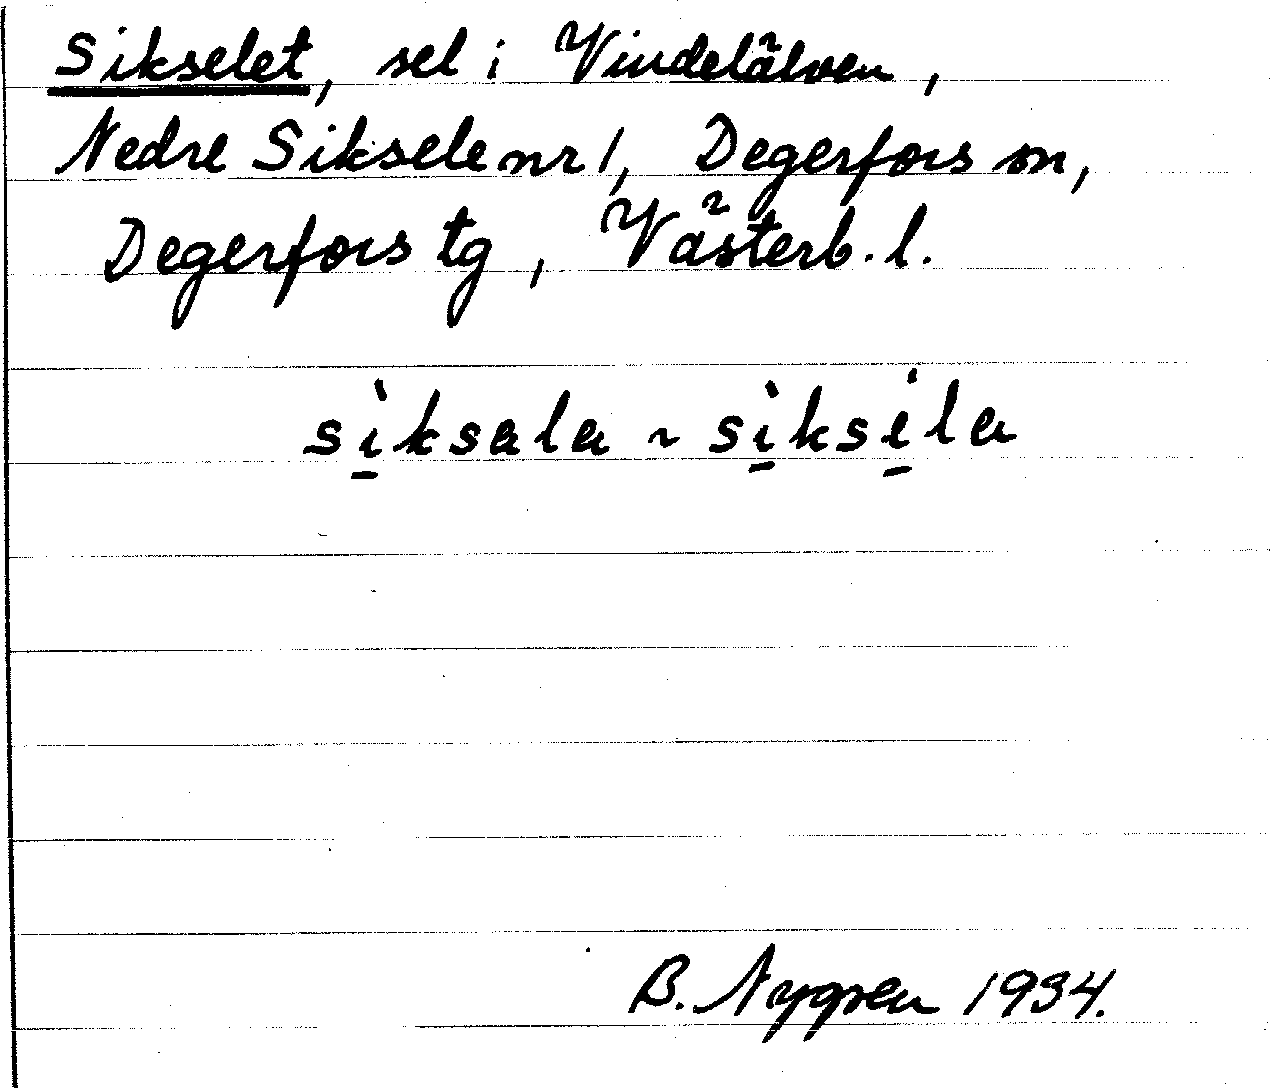 Sikselet, sel i Vindelälven,
Nedre Siksele nr 1, Degerfors sn,
Degerfors tg, Västerb. l.
si̱ksala ~ si̱ksi̱la
B. Nygren 1934.